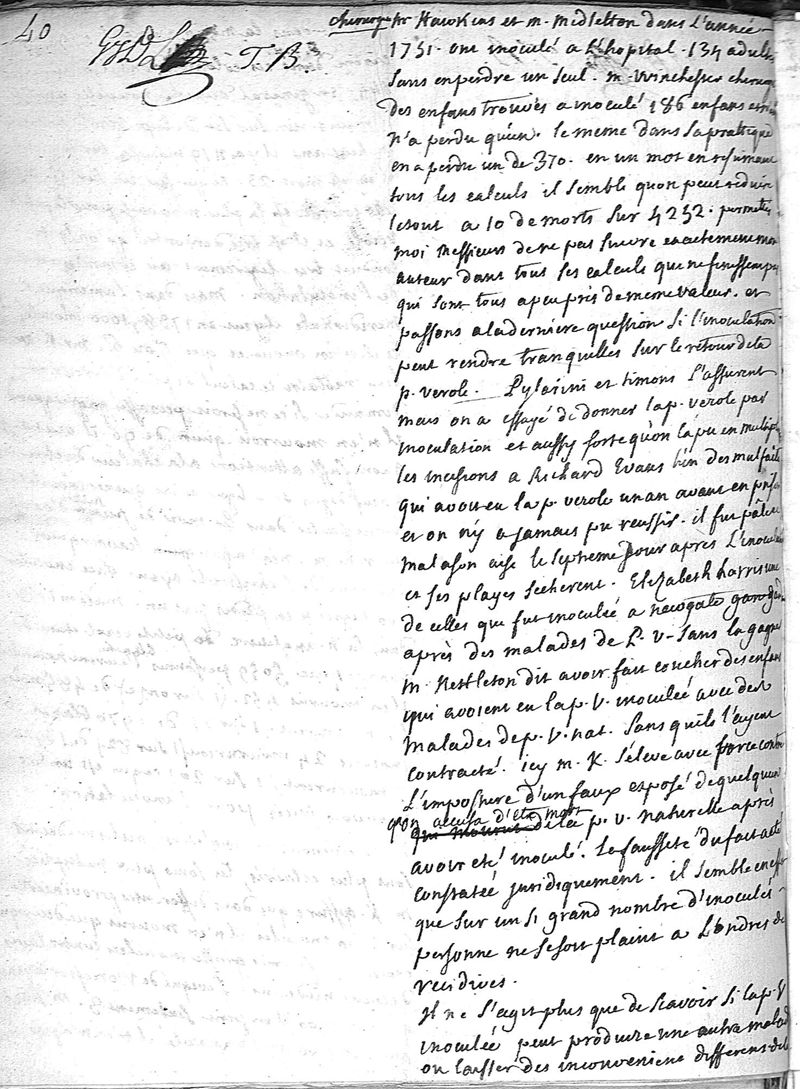 40
T. B.
chirurge Mr Hawkins et m. Midleton dans L'année
1751. ont inoculé a L'hopital. 134 adult
sans en perdre un seul. m. Winchester chirurg
des enfans trouvés a inoculé 186 enfans et
n'a perdu qu'un. le meme dans sa prattique
en a perdu un de 370. en un mot en resumant
tous les calculs il semble qu'on peut reduire
le tout a 10 de morts sur 4252. permettés
moi Messieurs de ne pas suivre exactement mon
auteur dans tous ses calculs que ne finissent pas
qui sont tous a peu pres de meme valeur. et
passons a la derniere question si l'inoculation
peut rendre tranquilles sur le retour de la
p. verole. Pylarini et timoni l'assurent
mais on a essayé de donner la p. verole par
inoculation et aussy forte qu'on l'a pu en multipl
les incisions a Richard Evans l'un des malfait
qui avoit eu la p. verole un an avant en prison
et on n'y a jamais pu reussir. il fut
mal a son aise le septieme jour après L'inoculat
et ses playes secherent. Elizabeth harris une
de celles qui fut inoculée a newgate
après des malades de P. V. sans la gagner
m. Nettleton dit avoir fait coucher des enfans
qui avoient eu la p. V. inoculeé avec des
malades de p. V. nat. sans qu'ils l'ayent
contracté. icy m. K. s'eleve avec force contre
L'imposture d'un faux exposé de quelqu'un
qu'on accusa d'etre mort
qui mourut de la p. v. naturelle après
avoir eté inoculé. la fausseté du fait a eté
constateé juridiquement. il semble en effet
que sur un si grand nombre d'inoculés
personne ne se soit plaint a Londres de
recidives.
Il ne s'agit plus que de scavoir si la p. V
inoculeé peut produire une autre malad
ou laisser des inconveniens differens de